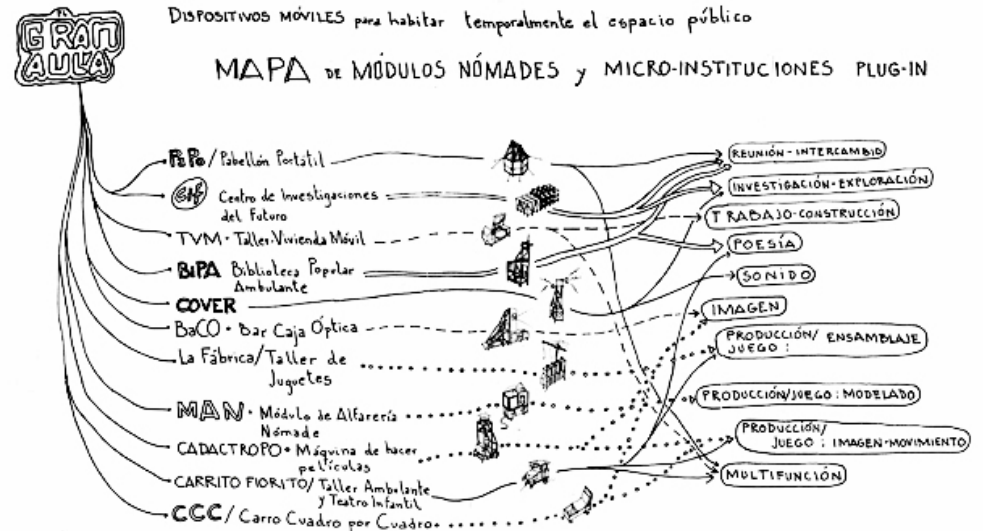 EL
GRAN
AULA
DISPOSITIVOS MÓVILES para habitar temporalmente el espacio público
MAPA DE MÓDULOS NÓMADES y MICRO-INSTITUCIONES PLUG-IN
PaPo / Pabellón Portátil
CIF Centro de Investigaciones
del Futuro
TVM · Taller-Vivienda Móvil
BiPA Biblioteca Popular
Ambulante
COVER
BaCO · Bar Caja Óptica
La Fábrica/Taller de
Juguetes
MAN · Módulo de Alfarería
Nómade
CADACTROPO · Máquina de hacer
películas
CARRITO FIORITO/Taller Ambulante
y Teatro Infantil
CCC / Carro Cuadro por Cuadro
REUNIÓN-INTERCAMBIO
INVESTIGACIÓN-EXPLORACIÓN
TRABAJO-CONSTRUCCIÓN
POESÍA
SONIDO
IMAGEN
PRODUCCIÓN/ ENSAMBLAJE
JUEGO :
PRODUCCIÓN/JUEGO : MODELADO
PRODUCCIÓN/
JUEGO : IMAGEN-MOVIMIENTO
MULTIFUNCIÓN